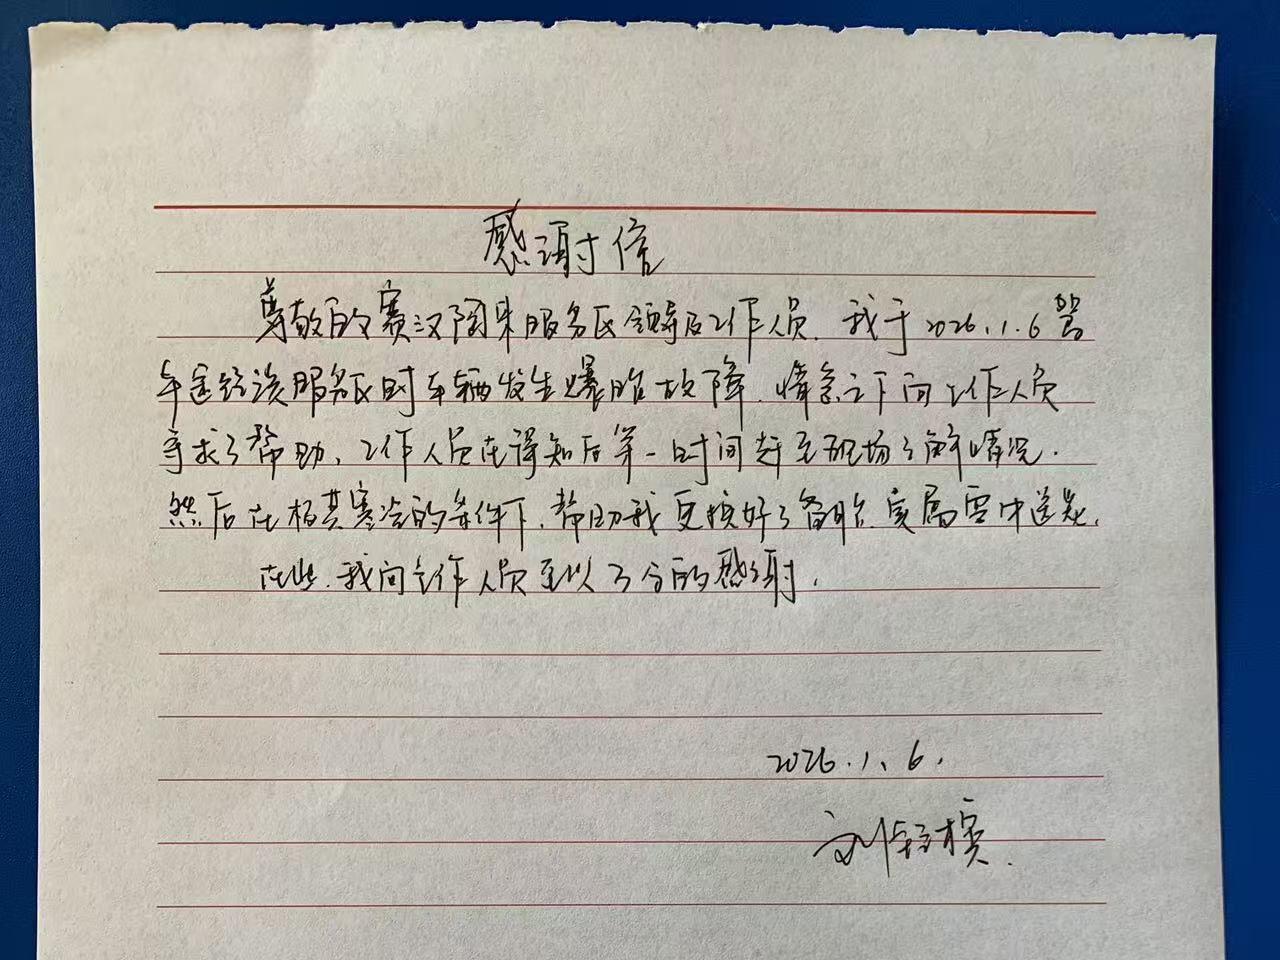 感谢信
尊敬的赛汉陶来服务区领导及工作人员，我于2026.1.6驾
车途经该服务区时车辆发生爆胎故障，情急之下向工作人员
寻求了帮助，工作人员在得知后第一时间赶至现场了解情况．
然后在极其寒冷的条件下，帮助我更换好了备胎，实属雪中送炭，
在此，我向工作人员至以万分的感谢，
2026.1.6.
刘